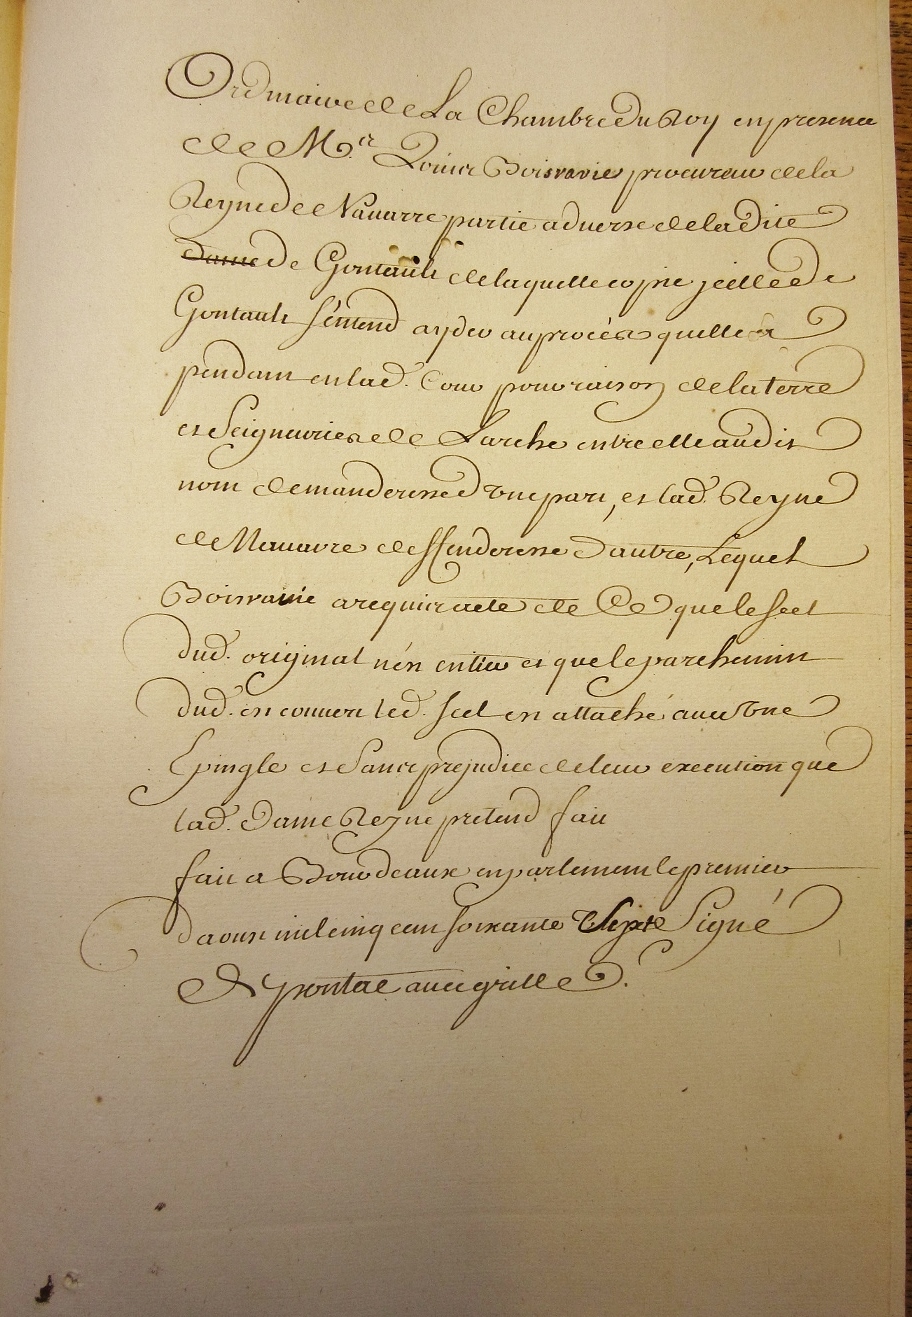 Ordinaire de La Chambre du Roy en presence
de M.er Boisravie procureur de la
Reyne de Navarre partie adverse de la dite
dame de Gontault de laquelle copie icelle de
Gontault s'entend ayder au procés quelle a
pendant en lad. Cour pour raison de la terre
et Seigneurie de Larche entre elle au dit
nom demanderesse d'une part, et lad. Reyne
de Navarre deffenderesse d'autre, Lequel
Boisravie a requis acte de Ce que le scel
dud. original n'est entier et que le parchemin
dud. en couvert led. scel est attaché avec une
Epingle et Sans prejudice de leur execution que
lad. Dame Reyne pretend fair
fait a Bourdeaux en parlement le premier
d'aoust mil cinq cent soixante Sept Signé
De pontac avec grille.